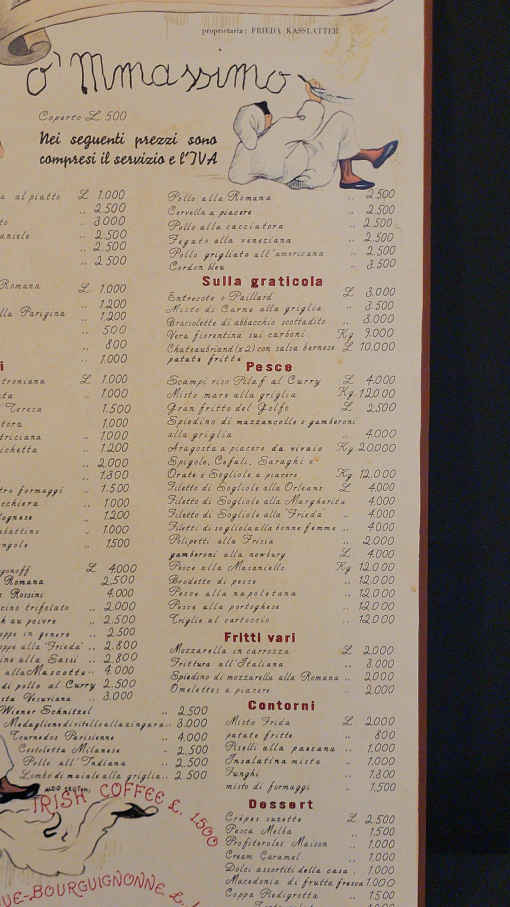 proprietaria: FRIEDA KASSLATTER
o' Mmassimo
Coperto L. 500
Nei seguenti prezzi sono
compresi il servizio e l'IVA
al piatto L 1.000
.. 2.500
3.000
.. 2.500
.. 2.500
.. 2.500
Romana L 1.000
.. 1.200
lla Parigina .. 1.200
.. 500
.. 800
.. 1.000
L 1.000
. 1.000
Teresa 1.500
1.000
triciana .. 1.000
chetta .. 1.200
.. 2.000
.. 1.800
formaggi . 1.500
cchiera . 1.000
lognese . 1.200
abattino . 1.000
ongole . 1.500
L 4.000
Romana 2.500
Rossini 4.000
cino trifolato .. 2.000
au poivre .. 2.500
oppe in genere .. 2.500
oppe alla "Frieda" .. 2.800
ine alla Sassi .. 2.800
alla Mascotte .. 4.000
di pollo al Curry 2.500
sta Vesuviana .. 3.000
Wiener Schnitzel .. 2.500
Medaglione di vitello alla zingara .. 3.000
Tournedos Parisienne .. 4.000
Costoletta Milanese - 2.500
Pollo all'Indiana .. 2.500
Lombo di maiale alla griglia .. 2.500
IRISH COFFEE L. 1500
UE-BOURGUIGNONNE L.
Pollo alla Romana .. 2.500
Cervella a piacere .. 2.500
Pollo alla cacciatora .. 2.500
Fegato alla veneziana .. 2.500
Pollo grigliato all'americana .. 2.500
Cordon bleu .. 3.500
Sulla graticola
Entrecote o Paillard L 3.000
Misto di Carne alla griglia .. 3.500
Braciolette di abbacchio scottadito .. 3.000
Vera fiorentina sui carboni Kg 9.000
Chateaubriand (x 2) con salsa bernese L 10.000
patate fritte
Pesce
Scampi riso Pilaf al Curry L 4.000
Misto mare alla griglia Kg. 12.000
Gran fritto del Golfo L 2.500
Spiedino di mazzancolle o gamberoni
alla griglia .. 4.000
Aragosta a piacere da vivaio Kg 20.000
Spigole, Cefali, Saraghi e
Orate e Sogliole a piacere Kg 12.000
Filetto di Sogliole alla Orleans L 4.000
Filetto di Sogliole alla Margherita 4.000
Filetto di Sogliole alla "Frieda" .. 4.000
Filetti di sogliola alla bonne femme .. 4.000
Polipetti alla Frisia .. 2.000
gamberoni alla newburg L 4.000
Pesce alla Masaniello Kg 12.000
Brodetto di pesce .. 12.000
Pesce alla napoletana .. 12.000
Pesce alla portoghese .. 12.000
Triglie al cartoccio .. 12.000
Fritti vari
Mozzarella in carrozza L 2.000
Frittura all'Italiana .. 3.000
Spiedino di mozzarella alla Romana .. 2.000
Omelettes a piacere .. 2.000
Contorni
Misto Frida L 2.000
patate fritte .. 800
Piselli alla paesana .. 1.000
Insalatina mista . 1.000
Funghi .. 1.800
misto di formaggi . 1.500
Dessert
Crêpes suzette L 2.500
Pesca Melba .. 1.500
Profiteroles Maison .. 1.000
Cream Caramel . 1.000
Dolci assortiti della casa . 1.000
Macedonia di frutta fresca 1.000
Coppa Piedigrotta .. 1.500